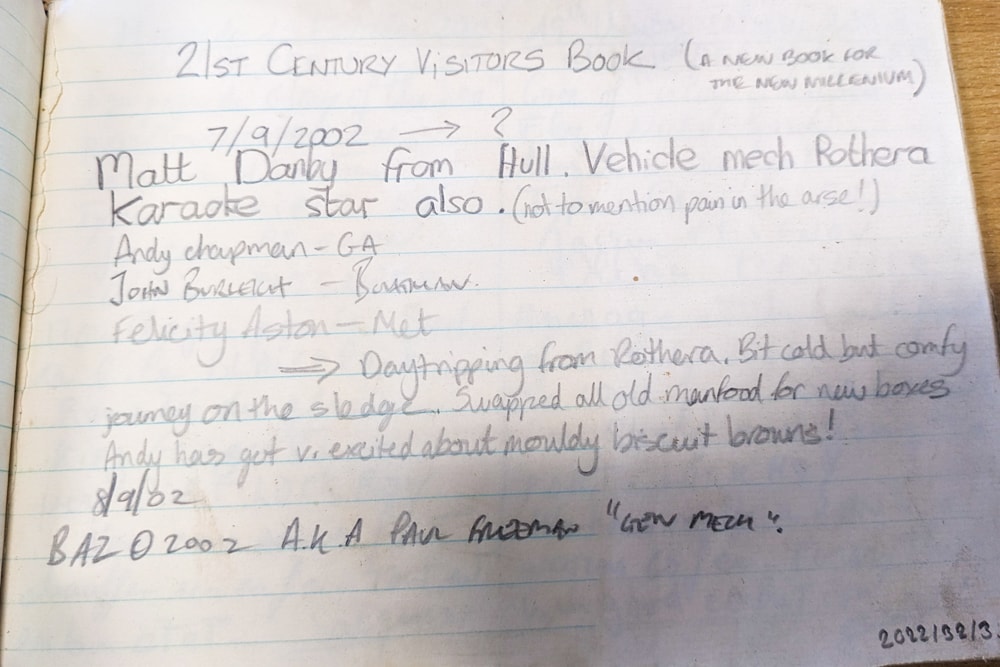 21ST CENTURY VISITORS BOOK (A NEW BOOK FOR
THE NEW MILLENIUM)
7/9/2002 → ?
Matt Danby from Hull. Vehicle mech Rothera
Karaoke star also. (not to mention pain in the arse!)
Andy chapman - GA
JOHN BURLEIGH - BOATMAN.
Felicity Aston - Met
⇒ Daytripping from Rothera. Bit cold but comfy
journey on the sledge. Swapped all old manfood for new boxes
Andy has got v. excited about mouldy biscuit browns!
8/9/02
BAZ 2002 A.K.A PAUL "GEN MECH".
2022/32/3.